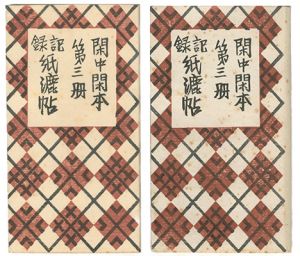 閑中閑本
第三冊
記録
紙漉帖
閑中閑本
第三冊
記録
紙漉帖